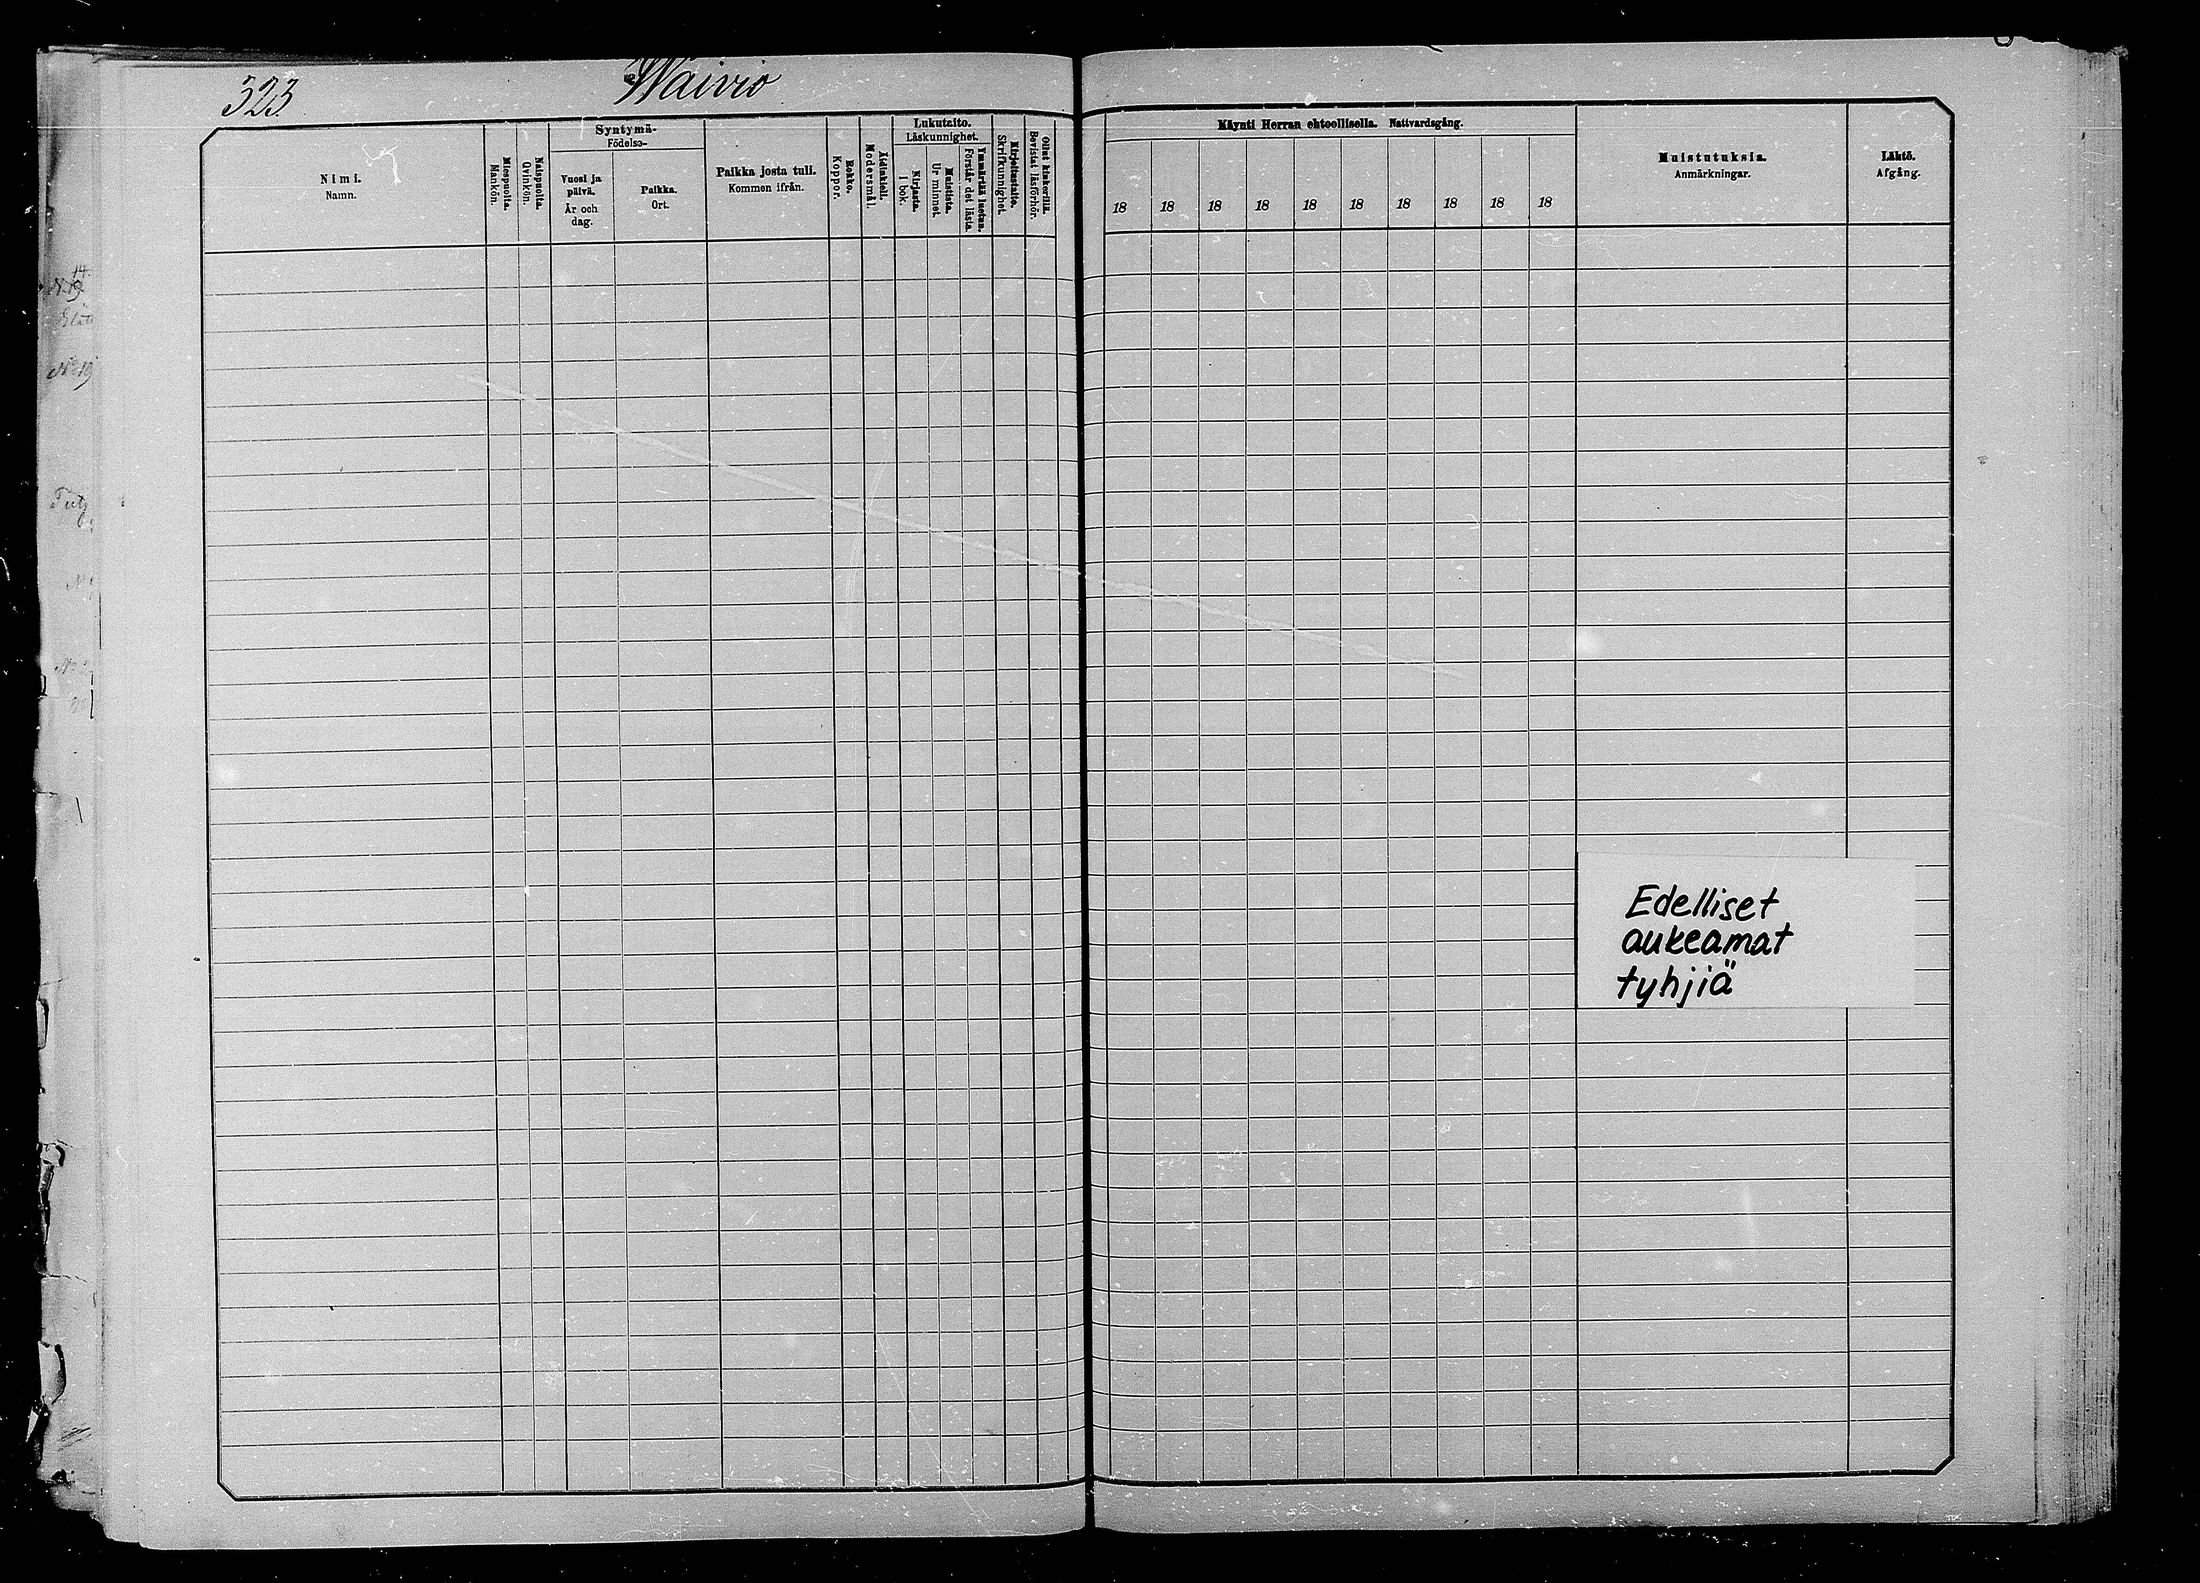 323.
Waivio
Nimi.
Namn.
Miespuolta.
Mankön.
Naispuolta.
Qvinkön.
Syntymä-
Födelse-
Vuosi ja
päivä.
År och
dag.
Paikka.
Ort.
Paikka josta tuli.
Kommen ifrån.
Rokko.
Koppor.
Äidinkieli.
Modersmål.
Lukutaito.
Läskunnighet.
Kirjasta.
I bok.
Muistista.
Ur minnet.
Ymmärtää luetun.
Förstår det lästa.
Kirjoitustaito.
Skrifkunnighet.
Ollut kinkerillä.
Bevistat läsförhör.
Käynti Herran ehtoollisella. Nattvardsgång.
18 18 18 18 18 18 18 18 18 18
Muistutuksia.
Anmärkningar.
Lähtö.
Afgång.
Edelliset
aukeamat
tyhjiä